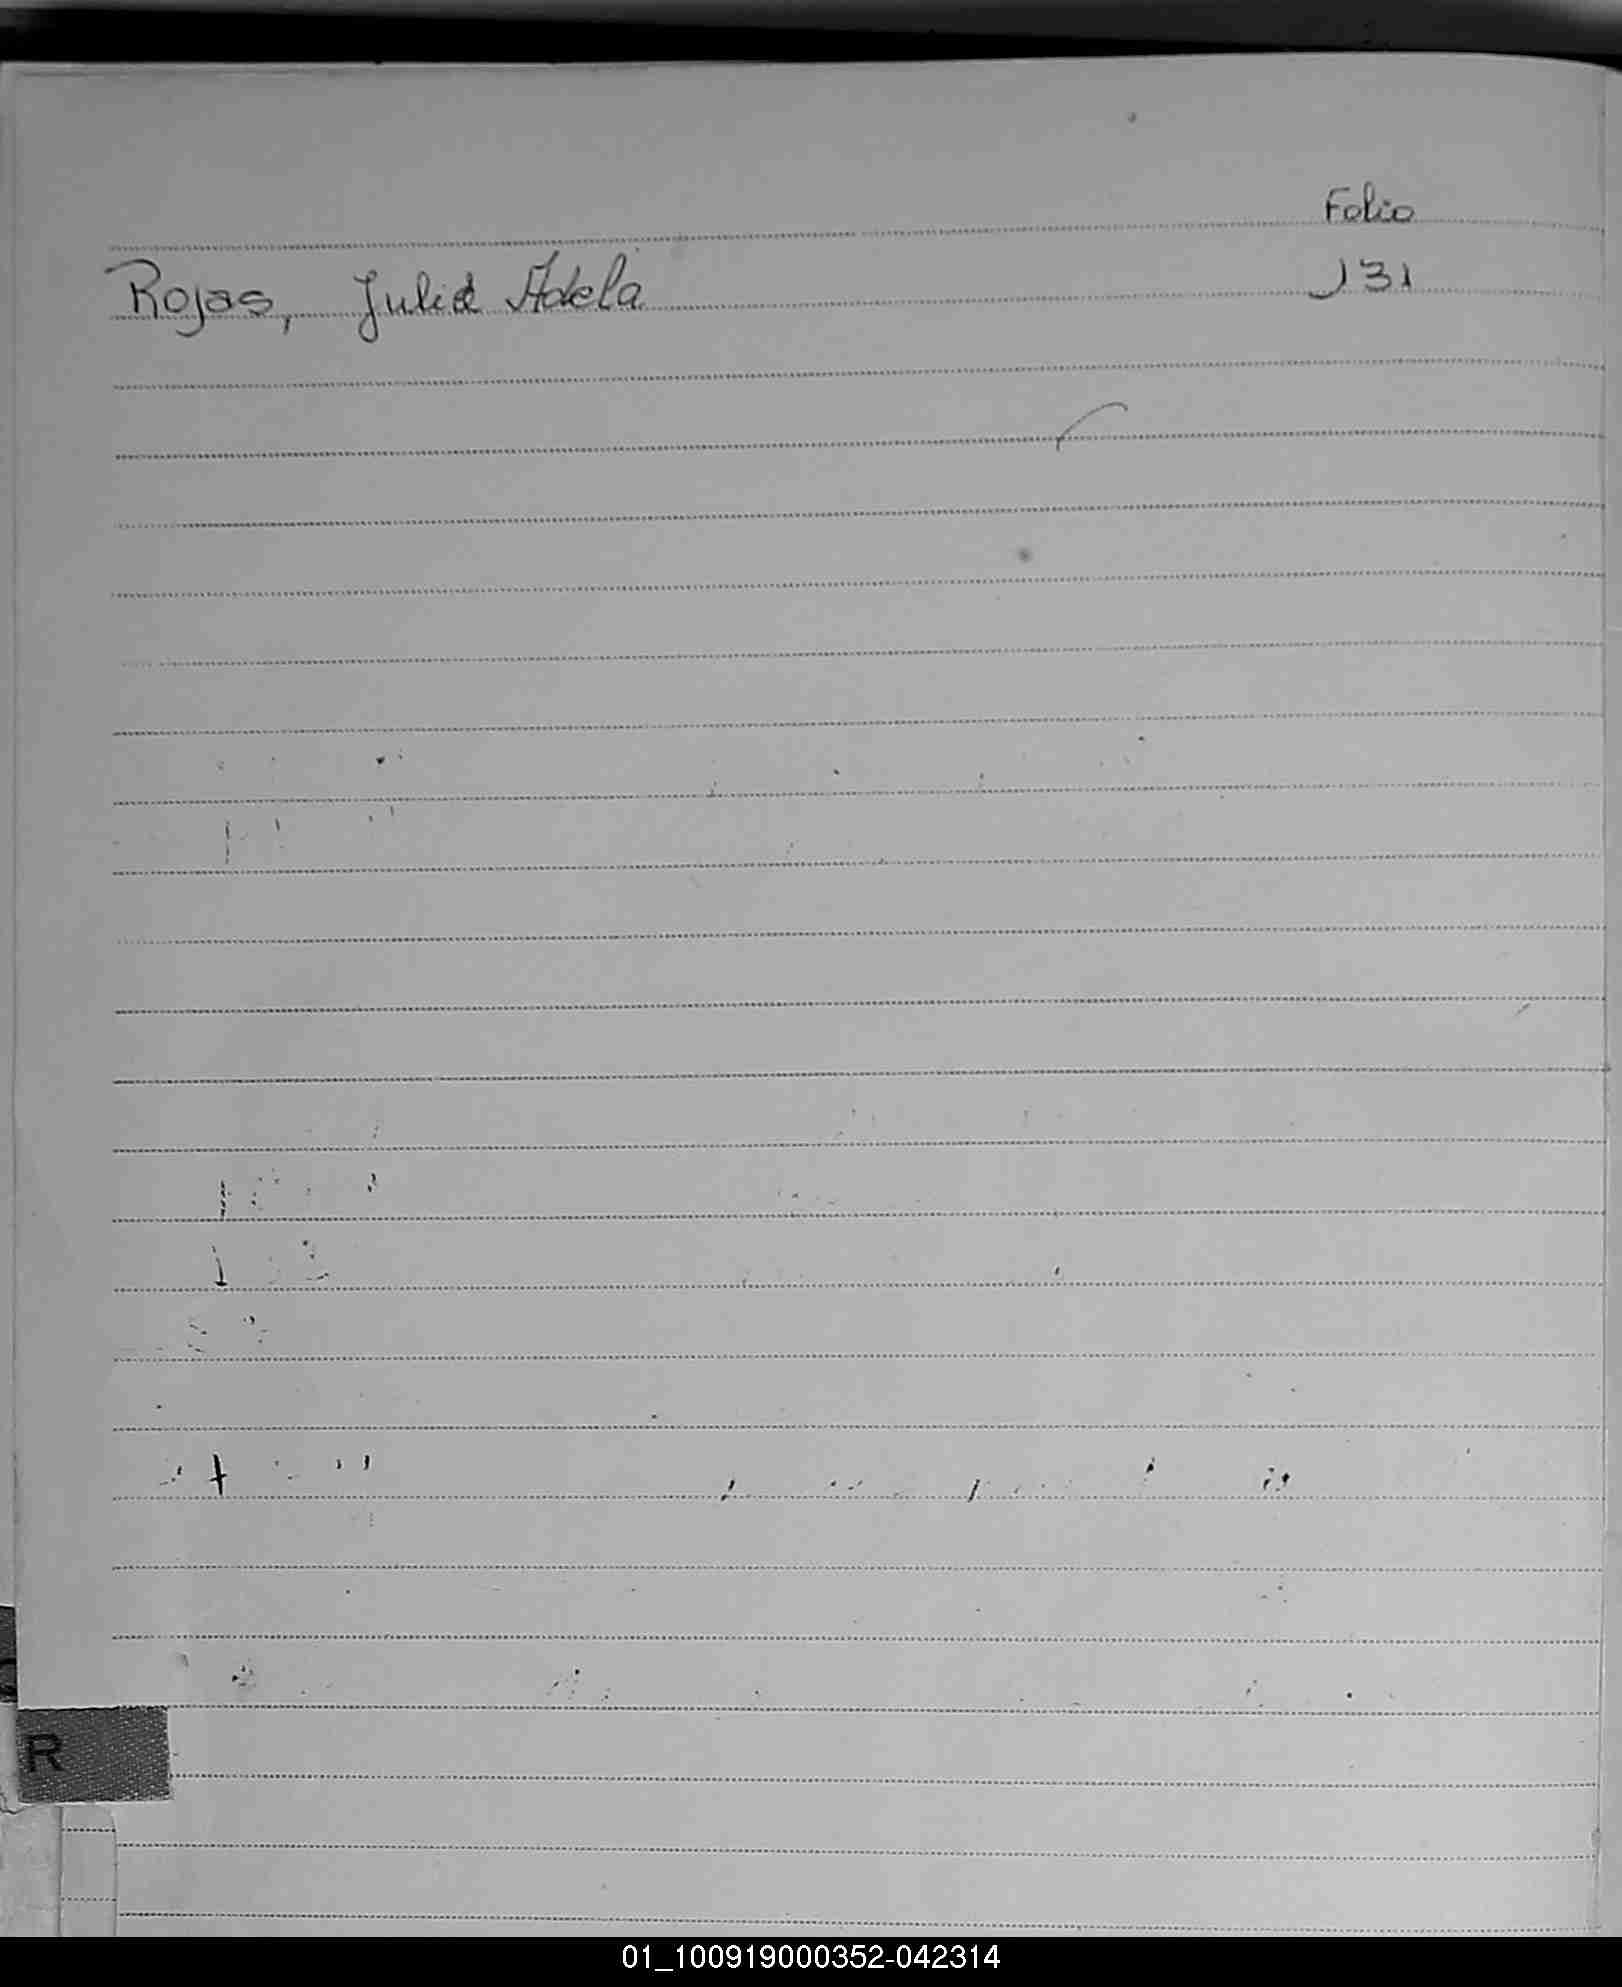 Folio
Rojas, Julia Adela 131
R
01_100919000352-042314